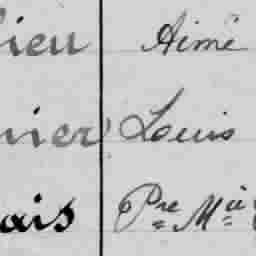 ieu Aimé
nier Louis
ais Pre Mie